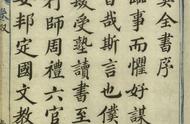 全書序
臨事而懼好謀
旨哉斯言也僕
受塾讀書至
行師周禮六官
安邦定國文教